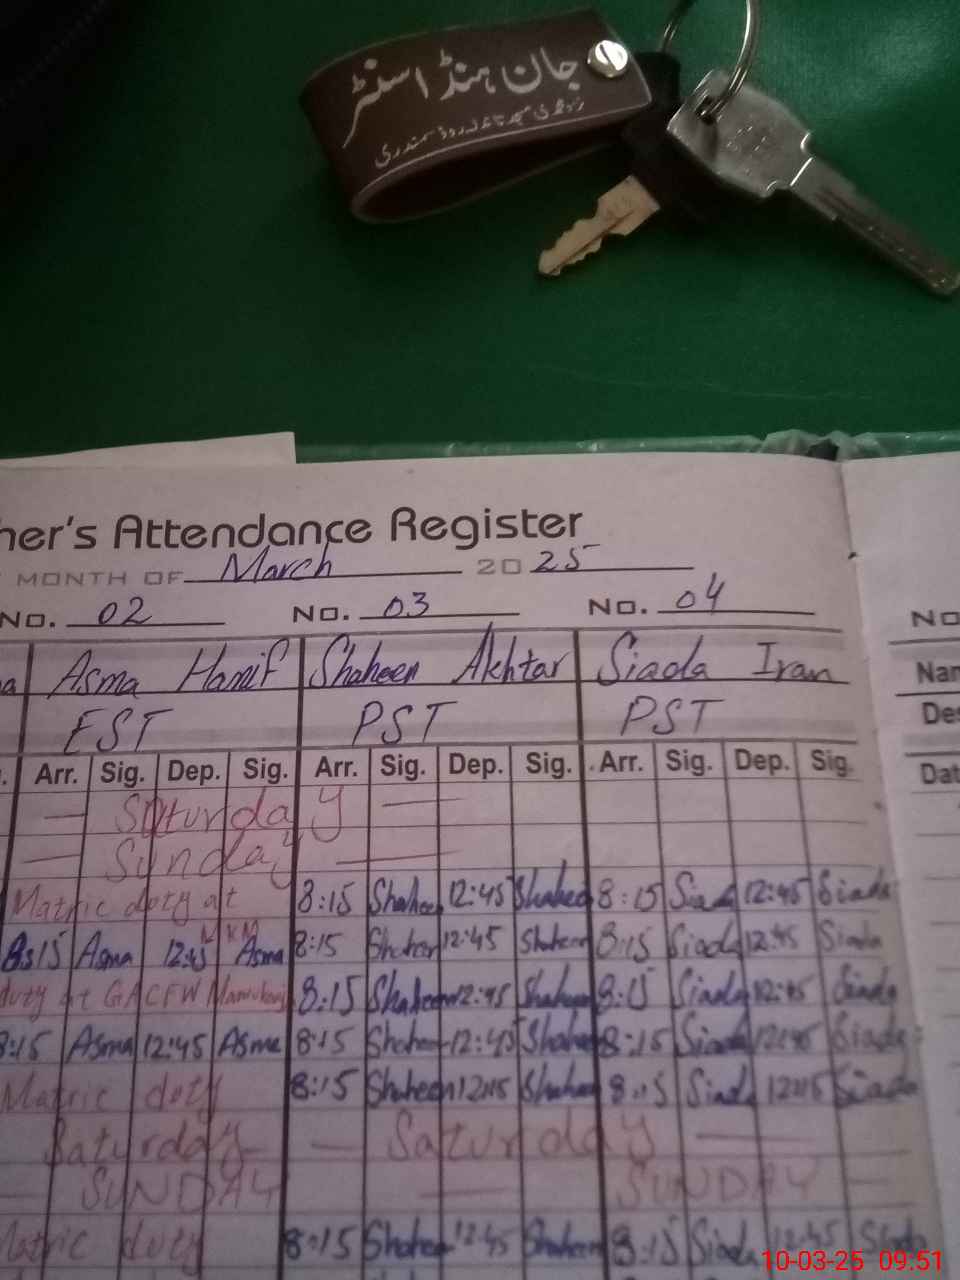 جان ہنڈا سنٹر
her's Attendance Register
MONTH OF March 2025
No. 02 No. 03 No. 04 No
a Asma Hanif Shaheen Akhtar Siada Iran Nam
EST PST PST Des
. Arr. Sig. Dep. Sig. Arr. Sig. Dep. Sig. Arr. Sig. Dep. Sig. Dat
— Saturday —
— Sunday —
Matric duty at 8:15 Shaheen 12:45 Shaheen 8:15 Siada 12:45 Siada
MKM
8:15 Asma 12:45 Asma 8:15 Shaheen 12:45 Shaheen 8:15 Siada 12:45 Siada
duty at GACFW 8:15 Shaheen 12:45 Shaheen 8:15 Siada 12:45 Siada
8:15 Asma 12:45 Asma 8:15 Shaheen 12:45 Shaheen 8:15 Siada 12:45 Siada
Matric duty 8:15 Shaheen 12:45 Shaheen 8:15 Siada 12:45 Siada
Saturday — Saturday —
— SUNDAY — SUNDAY —
Matric duty 8:15 Shaheen 12:45 Shaheen 8:15 Siada 12:45 Siada
10-03-25 09:51